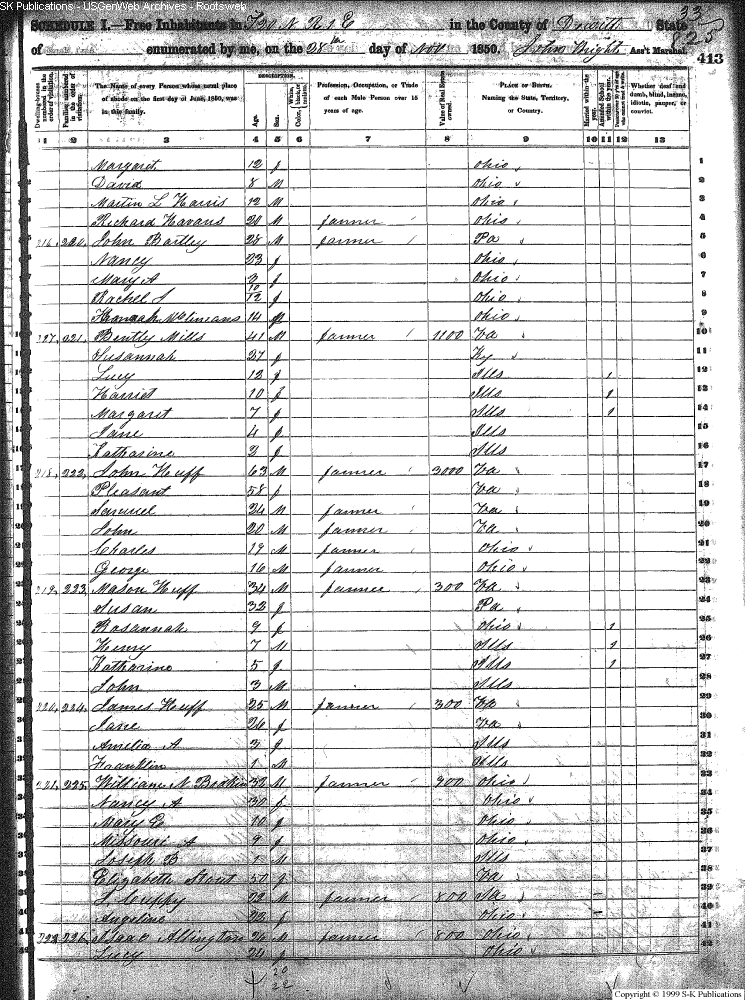 SK Publications - USGenWeb Archives - Rootsweb
SCHEDULE I.—Free Inhabitants in T20 N R 1 E in the County of Dewitt State
of enumerated by me, on the 28th day of Nov 1850. John Wright Ass't Marshal.
33
825
413
Dwelling-houses numbered in the order of visitation.
Families numbered in the order of visitation.
The Name of every Person whose usual place of abode on the first day of June, 1850, was in this family.
DESCRIPTION.
Age.
Sex.
Color, White, black, or mulatto.
Profession, Occupation, or Trade of each Male Person over 15 years of age.
Value of Real Estate owned.
PLACE OF BIRTH. Naming the State, Territory, or Country.
Married within the year.
Attended School within the year.
Whether deaf and dumb, blind, insane, idiotic, pauper, or convict.
1 2 3 4 5 6 7 8 9 10 11 12 13
Margaret 12 f Ohio 1
David 8 M Ohio 2
Martin L Harris 12 M Ohio 3
Richard Havans 20 M farmer Ohio 4
216 220 John Bartley 28 M farmer Pa 5
Nancy 23 f Ohio 6
Mary A 3 f Ohio 7
Rachel S 10/12 f Ohio 8
Hannah 14 f Ohio 9
217 221 Bently Mills 41 M farmer 1100 Va 10
Susannah 27 f Ky 11
Lucy 12 f Ills 1 12
Harriet 10 f Ills 1 13
Margaret 7 f Ills 1 14
Jane 4 f Ills 15
Katharine 2 f Ills 16
218 222 John Huff 63 M farmer 3000 Va 17
Pleasant 58 f Va 18
Samuel 24 M farmer Va 19
John 20 M farmer Va 20
Charles 19 M farmer Ohio 21
George 16 M farmer Ohio 22
219 223 Mason Huff 34 M farmer 300 Va 23
Susan 32 f Pa 24
Rosannah 9 f Ohio 1 25
Henry 7 M Ills 1 26
Katharine 5 f Ills 1 27
John 3 M Ills 28
220 224 James Huff 25 M farmer 300 Va 29
Jane 26 f Va 30
Amelia A 3 f Ills 31
Franklin 1 M Ills 32
221 225 William N 32 M farmer 900 Ohio 33
Nancy A 30 f Ohio 34
Mary E 10 f Ohio 35
Missouri A 9 f Ohio 36
Joseph B 1 M Ills 37
Elizabeth Stout 50 f Va 38
S Cuppy 22 M farmer 800 39
Angeline 23 f Ohio 40
222 226 Isaac Allington 26 M farmer 800 Ohio 41
Lucy 24 f Ohio 42
20
22
Copyright © 1999 S-K Publications